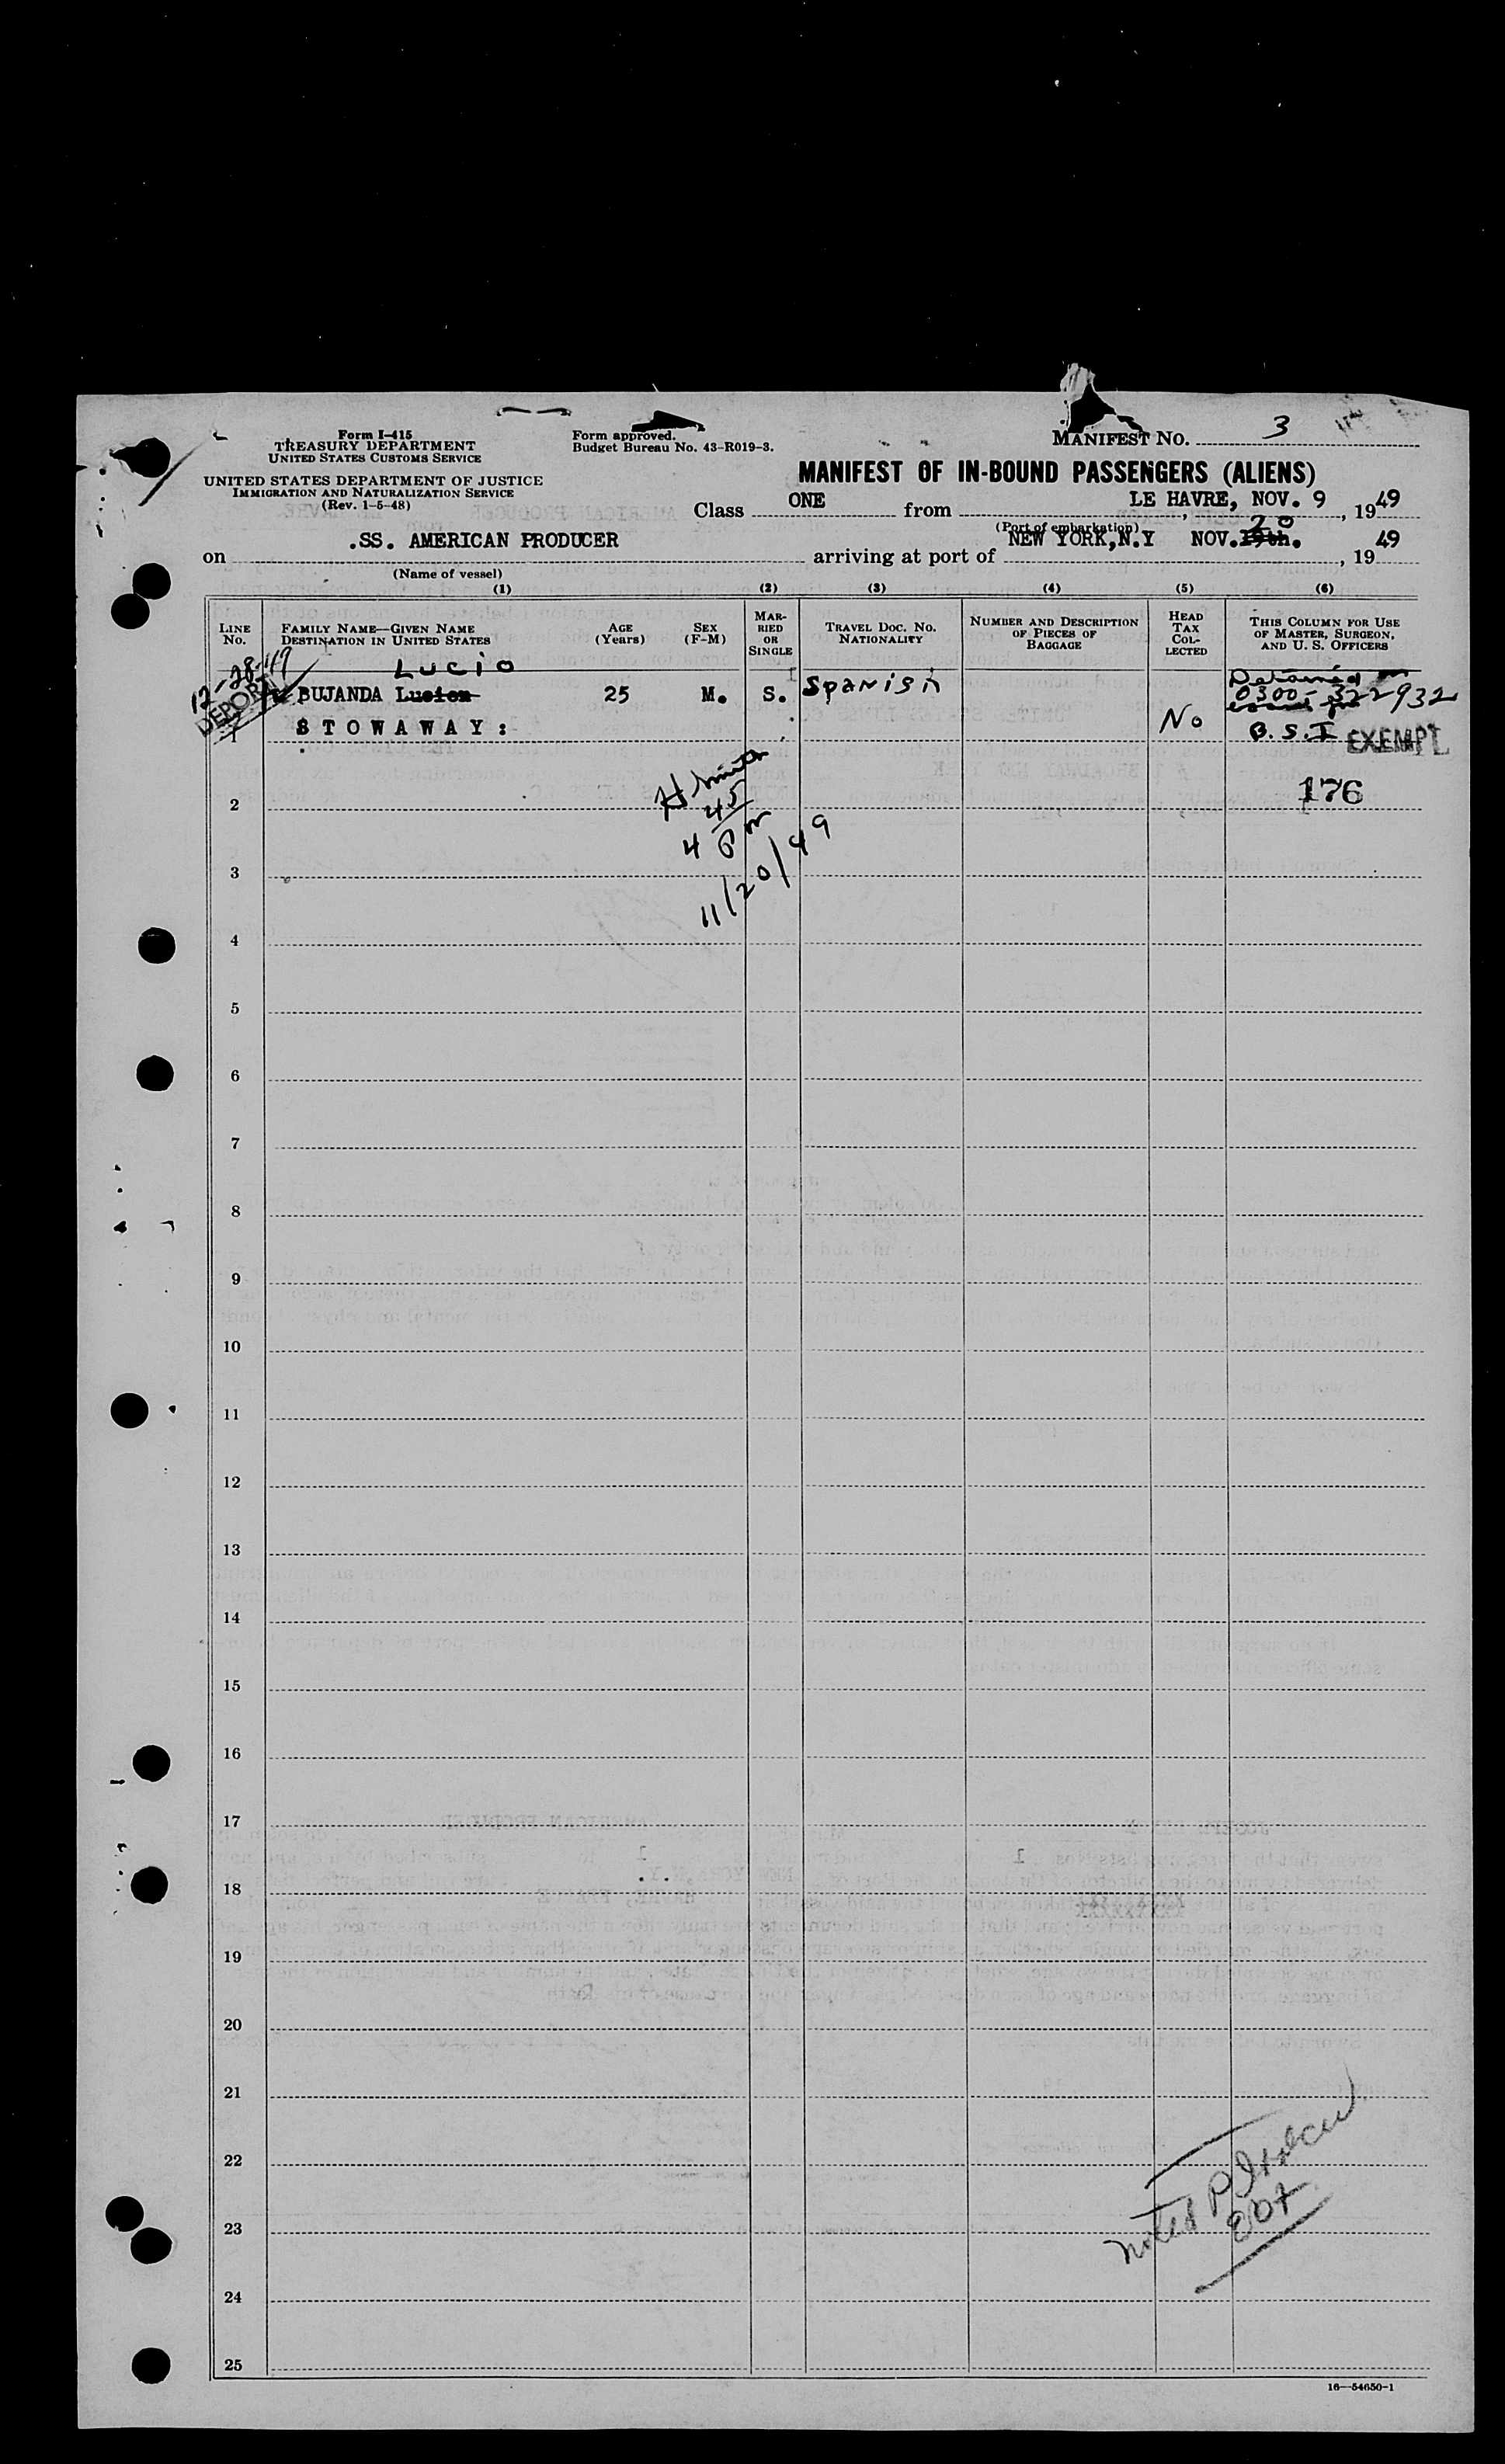 Form I-415
TREASURY DEPARTMENT
UNITED STATES CUSTOMS SERVICE
UNITED STATES DEPARTMENT OF JUSTICE
IMMIGRATION AND NATURALIZATION SERVICE
(Rev. 1-5-48)
Form approved.
Budget Bureau No. 43-R019-3.
MANIFEST NO. 3
MANIFEST OF IN-BOUND PASSENGERS (ALIENS)
Class ONE from LE HAVRE, NOV. 9, 1949
(Port of embarkation)
20
on .SS. AMERICAN PRODUCER arriving at port of NEW YORK,N.Y NOV. 19th., 1949
(Name of vessel)
(1) (2) (3) (4) (5) (6)
LINE No.
FAMILY NAME—GIVEN NAME
DESTINATION IN UNITED STATES
AGE (Years)
SEX (F-M)
MARRIED OR SINGLE
TRAVEL DOC. NO.
NATIONALITY
NUMBER AND DESCRIPTION OF PIECES OF BAGGAGE
HEAD TAX COLLECTED
THIS COLUMN FOR USE OF MASTER, SURGEON, AND U. S. OFFICERS
12-28-49
DEPORT
Lucio
BUJANDA 25 M. S. Spanish
0300-322932
1 STOWAWAY: No B.S.I EXEMPT
176
H Smith
4 45 Pm
11/20/49
2
3
4
5
6
7
8
9
10
11
12
13
14
15
16
17
18
19
20
21
22
23
24
25
noted
16—54650-1